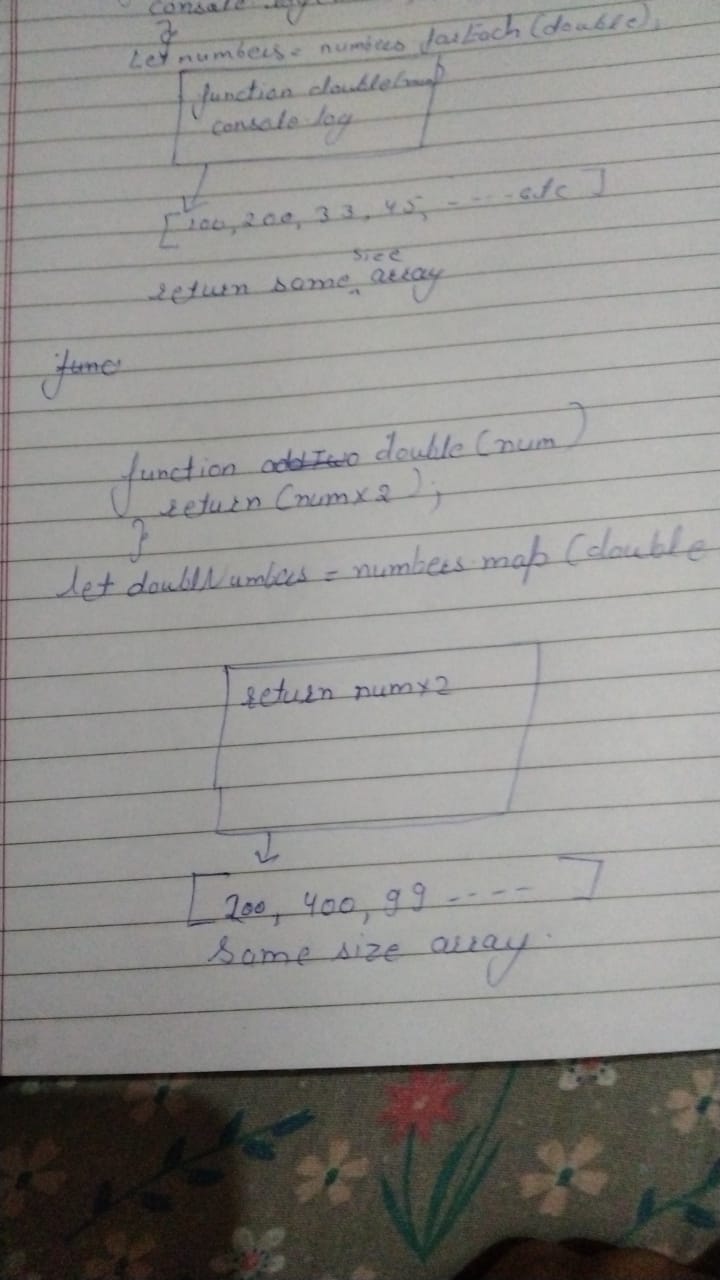 console log
}
Let numbers = numbers forEach (double);
function double(map
console log
[100, 200, 33, 45, ---- etc ]
size
return same array
func
function addTwo double (num)
return (num x 2);
}
let doublNumbers = numbers.map (double
return num x 2
[200, 400, 99 ---- ]
Same size array.